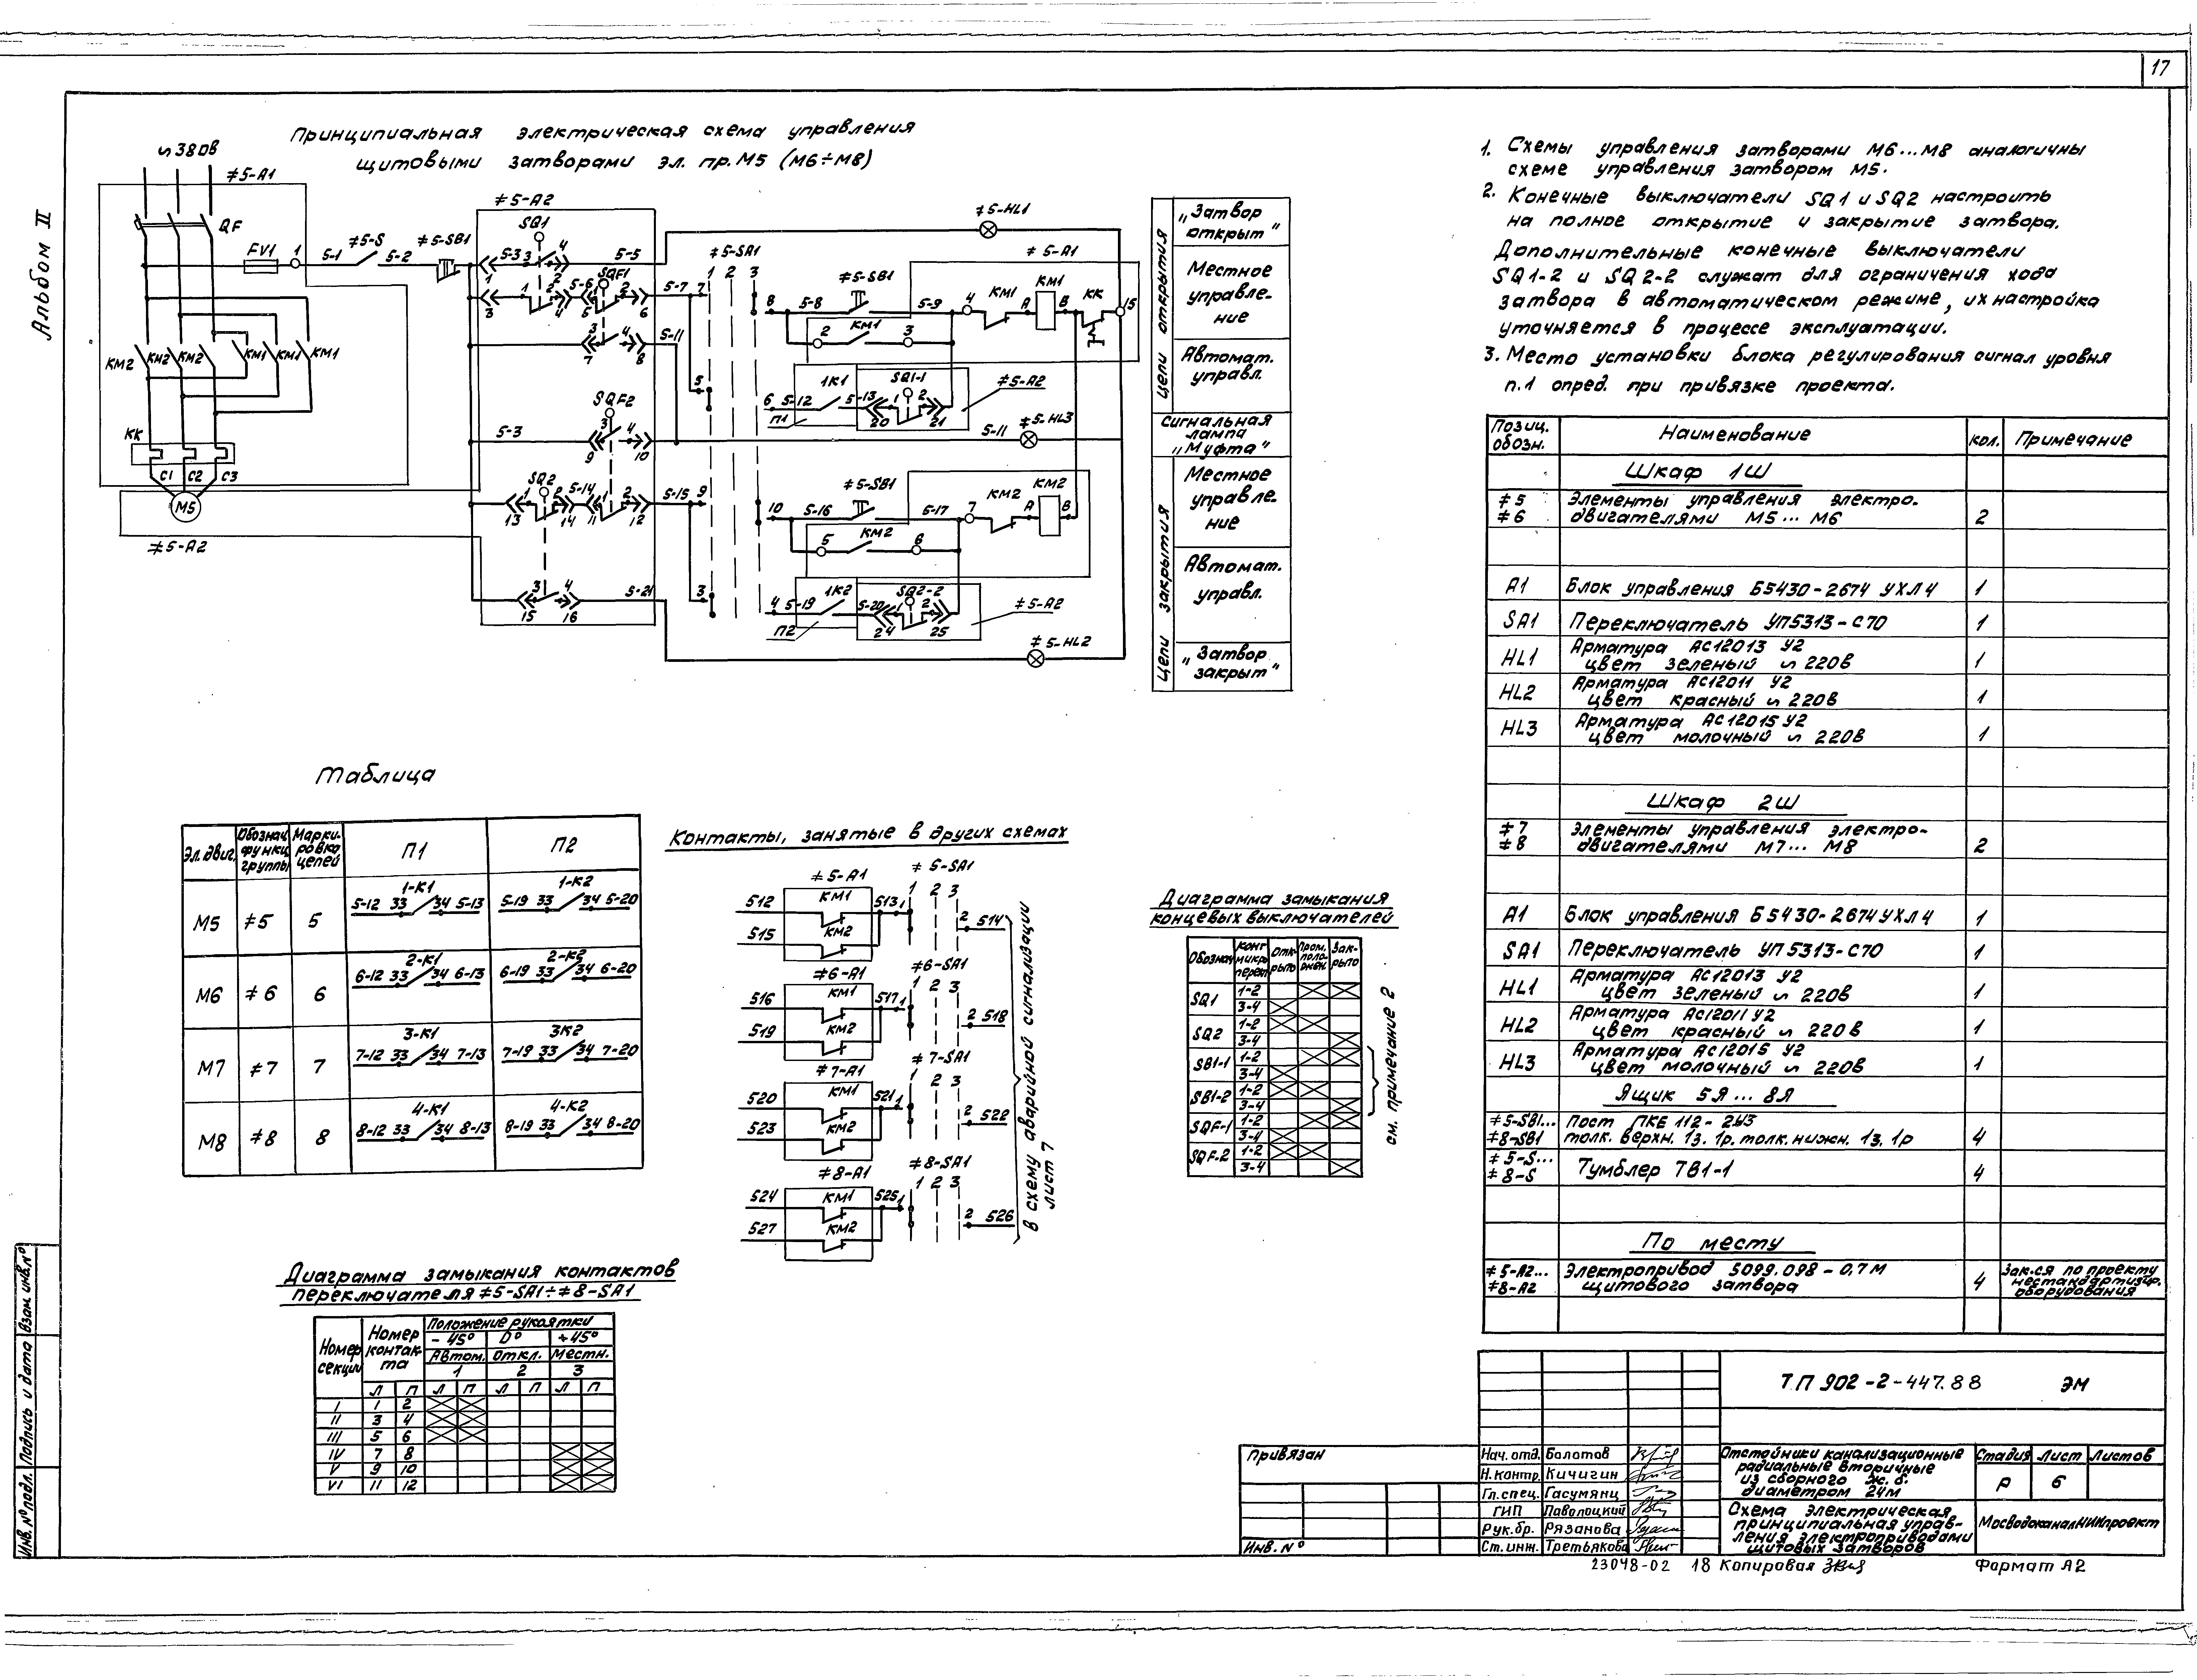 17
Альбом II
Принципиальная электрическая схема управления
щитовыми затворами эл. пр. М5 (М6÷М8)
∿380в
≠5-А1
QF
FV1
1
5-1
≠5-S
5-2
≠5-SB1
≠5-А2
SQ1
5-3
3
4
5-5
1
2
1
2
5-6
SQF1
2
5-7
7
3
4
5
6
3
4
5-11
7
8
SQF2
5-3
3
4
9
10
SQ2
1
2
5-14
1
2
5-15
9
13
14
11
12
3
4
5-21
3
15
16
≠5-SA1
1 2 3
5
≠5-HL1
≠5-А1
8
5-8
≠5-SB1
5-9
4
КМ1
А
КМ1
В
КК
15
2
КМ1
3
6
5-12
1К1
5-13
SQ1-1
1
2
20
21
≠5-А2
П1
5-11
≠5-HL3
10
5-16
≠5-SB1
5-17
7
КМ2
А
КМ2
В
5
КМ2
6
4
5-19
1К2
5-20
SQ2-2
1
2
24
25
≠5-А2
П2
≠5-HL2
КМ2
КМ2
КМ2
КМ1
КМ1
КМ1
КК
С1
С2
С3
М5
≠5-А2
Цепи открытия
„Затвор
открыт"
Местное
управле-
ние
Автомат.
управл.
Сигнальная
лампа
„Муфта"
Цепи закрытия
Местное
управле-
ние
Автомат.
управл.
„Затвор
закрыт"
1. Схемы управления затворами М6...М8 аналогичны
схеме управления затвором М5.
2. Конечные выключатели SQ1 и SQ2 настроить
на полное открытие и закрытие затвора.
Дополнительные конечные выключатели
SQ1-2 и SQ2-2 служат для ограничения хода
затвора в автоматическом режиме, их настройка
уточняется в процессе эксплуатации.
3. Место установки блока регулирования сигнал уровня
п.1 опред. при привязке проекта.
Позиц. обозн. Наименование Кол. Примечание
Шкаф 1Ш
≠5 Элементы управления электро-
≠6 двигателями М5... М6 2
А1 Блок управления Б5430-2674 УХЛ4 1
SA1 Переключатель УП5313-С70 1
HL1 Арматура АС12013 У2
цвет зеленый ∿220в 1
HL2 Арматура АС12011 У2
цвет красный ∿220в 1
HL3 Арматура АС12015 У2
цвет молочный ∿220в 1
Шкаф 2Ш
≠7 Элементы управления электро-
≠8 двигателями М7... М8 2
А1 Блок управления Б5430-2674УХЛ4 1
SA1 Переключатель УП5313-С70 1
HL1 Арматура АС12013 У2
цвет зеленый ∿220в 1
HL2 Арматура АС12011 У2
цвет красный ∿220в 1
HL3 Арматура АС12015 У2
цвет молочный ∿220в 1
Ящик 5Я... 8Я
≠5-SB1... Пост ПКЕ 112-2У3
≠8-SB1 толк. верхн. 1з. 1р. толк. нижн. 1з. 1р 4
≠5-S...
≠8-S Тумблер ТВ1-1 4
По месту
≠5-А2... Электропривод 5099.098-0,7М
≠8-А2 щитового затвора 4
Зак.ся по проекту
нестандартизир.
оборудования
Таблица
Эл. двиг. Обознач. функц. группы Марки-ровка цепей П1 П2
М5 ≠5 5
1-К1
5-12 33 34 5-13
1-К2
5-19 33 34 5-20
М6 ≠6 6
2-К1
6-12 33 34 6-13
2-К2
6-19 33 34 6-20
М7 ≠7 7
3-К1
7-12 33 34 7-13
3К2
7-19 33 34 7-20
М8 ≠8 8
4-К1
8-12 33 34 8-13
4-К2
8-19 33 34 8-20
Контакты, занятые в других схемах
≠5-А1 ≠5-SA1
512 КМ1 513 1 1 2 3
515 КМ2 2 514
≠6-А1 ≠6-SA1
516 КМ1 517 1 1 2 3
519 КМ2 2 518
≠7-А1 ≠7-SA1
520 КМ1 521 1 1 2 3
523 КМ2 2 522
≠8-А1 ≠8-SA1
524 КМ1 525 1 1 2 3
527 КМ2 2 526
В схему аварийной сигнализации
лист 7
Диаграмма замыкания
концевых выключателей
Обознач. конт микро перекл Отк-рыто Пром. поло-жен. Зак-рыто
SQ1 1-2
3-4
SQ2 1-2
3-4
SB1-1 1-2
3-4
SB1-2 1-2
3-4
SQF-1 1-2
3-4
SQF-2 1-2
3-4
см. примечание 2
Диаграмма замыкания контактов
переключателя ≠5-SA1÷≠8-SA1
Номер секции Номер контак-та Положение рукоятки
-45° 0° +45°
Автом. Откл. Местн.
1 2 3
Л П Л П Л П Л П
I 1 2
II 3 4
III 5 6
IV 7 8
V 9 10
VI 11 12
Инв. № подл. Подпись и дата Взам. инв. №
Привязан
Инв. №
ТП 902-2-447.88 ЭМ
Нач. отд. Болотов
Н. контр. Кичигин
Гл. спец. Гасумянц
ГИП Паволоцкий
Рук. бр. Рязанова
Ст. инж. Третьякова
Отстойники канализационные
радиальные вторичные
из сборного ж. б.
диаметром 24м
Стадия Лист Листов
Р 6
Схема электрическая
принципиальная управ-
ления электроприводами
щитовых затворов
МосводоканалНИИпроект
23048-02 18 Копировал Формат А2